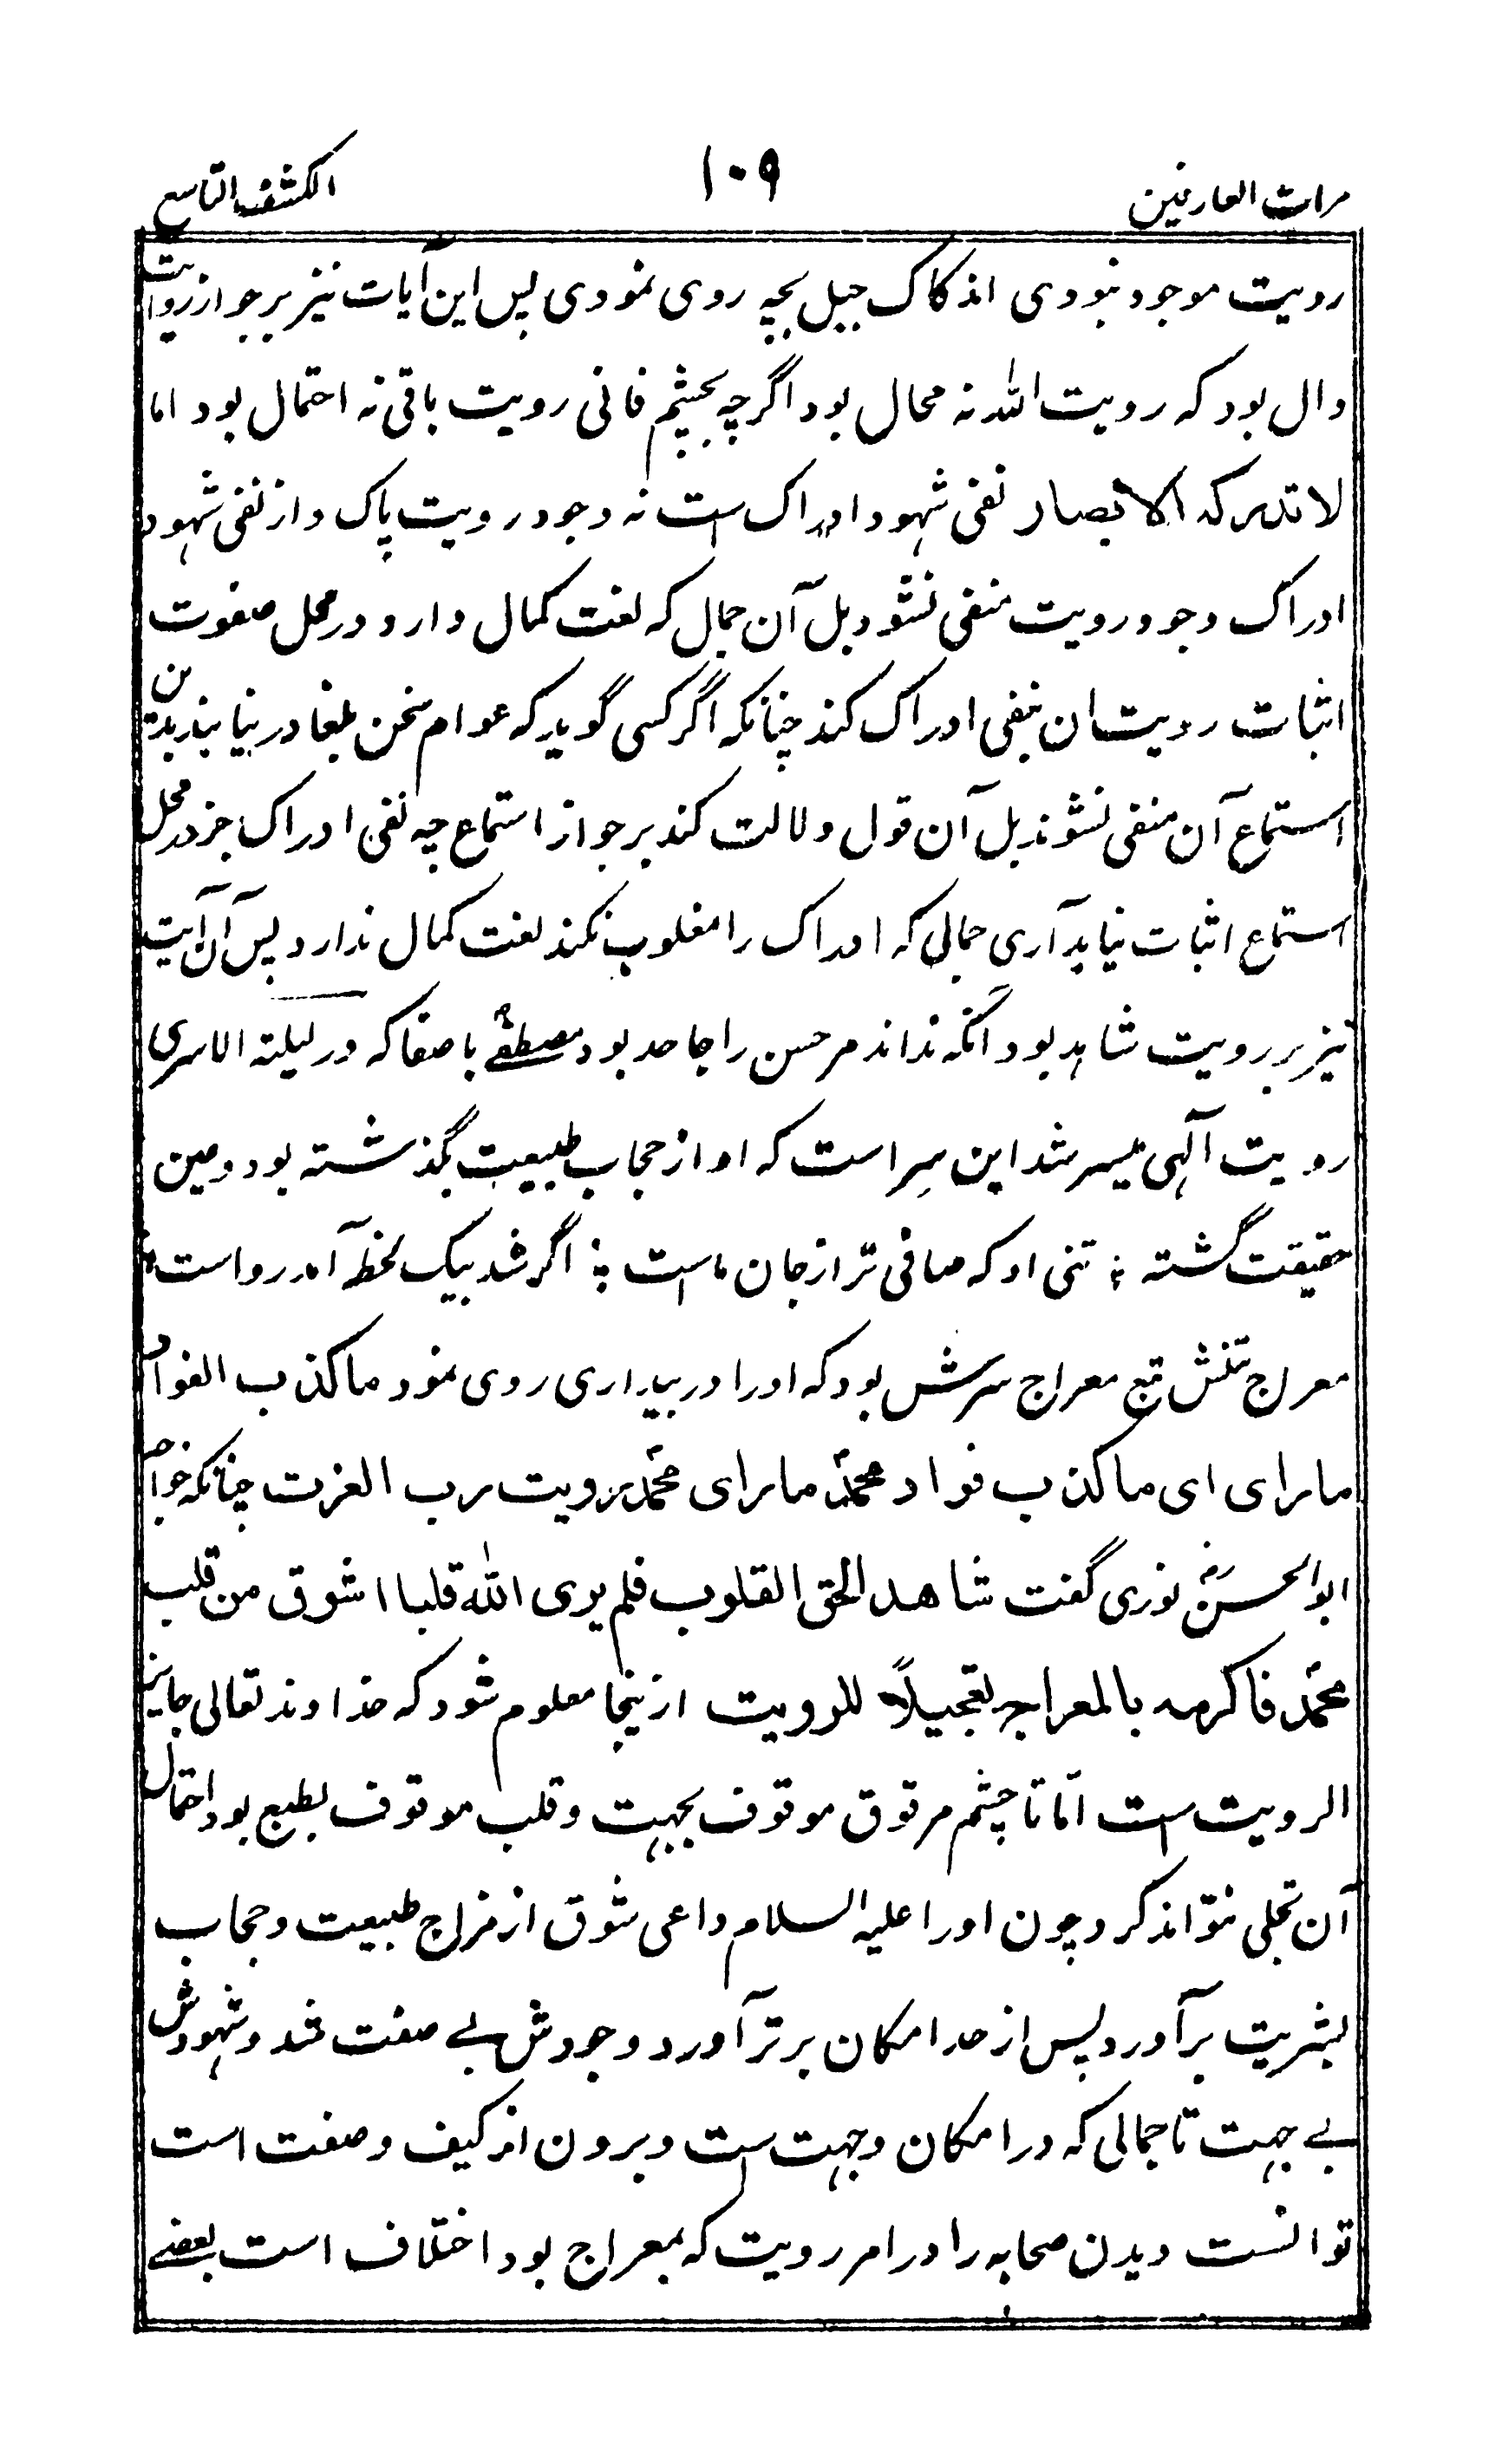 مرات العارفین ۱۰۹ الکشف التاسع
رویت موجود نبودی اندکاک جبل بچه روی نمودی پس این آیات نیز بر جواز رویت
دال بود که رویت الله نه محال بود اگرچه بچشم فانی رویت باقی نه احتمال بود اما
لا تدرکه الابصار نفی شهود ادراک ست نه وجود رویت پاک و از نفی شهود
ادراک وجود رویت منفی نشود بل آن جمال که لغت کمال دارد در محل صفوت
اثبات رویت ان بنفی ادراک کند چنانکه اگر کسی گوید که عوام سخن بلغا در نیابند بدین
استماع آن منفی نشوند بل آن قول دلالت کند بر جواز استماع چه نفی ادراک جز در محل
استماع اثبات نیاید آری جمالی که ادراک را مغلوب نکند لغت کمال ندارد پس آن آیت
نیز بر رویت شاهد بود آنکه نداند مر حسن را جاحد بود مصطفےٰ با صفا که در لیلته الاسری
رویت آلهی میسر شد این سِر است که او از حجاب طبیعت بگذشته بود و عین
حقیقت گشته ؛ تنی او که صافی تر از جان ماست ؛ اگر شد بیک لحظه آمد رواست ؛
معراج تنش تبع معراج سرش بود که او را در بیداری روی نمود ما کذب الفواد
مارای ای ما کذب فواد محمدؐ مارای محمدؐ برویت رب العزت چنانکه خواجه
ابو الحسنؒ نوری گفت شاهد الحق القلوب فلم یری الله قلبا اشوق من قلب
محمدؐ فاکرمه بالمعراج تعجیلاً للرویت ازینجا معلوم شود که خداوند تعالی جایز
الرویت ست امّا تا چشم مرقوق موقوف بجهت و قلب موقوف بطبع بود احتمال
آن تجلی نتواند کرد چون او را علیه السلام داعی شوق از مزاج طبیعت و حجاب
بشریت برآورد پس از حد امکان برتر آورد وجودش بے صفت شد و شهودش
بے جهت تا جمالی که ورا امکان و جهت ست و برون از کیف و صفت است
توانست دیدن صحابه را در امر رویت که بمعراج بود اختلاف است بعضے